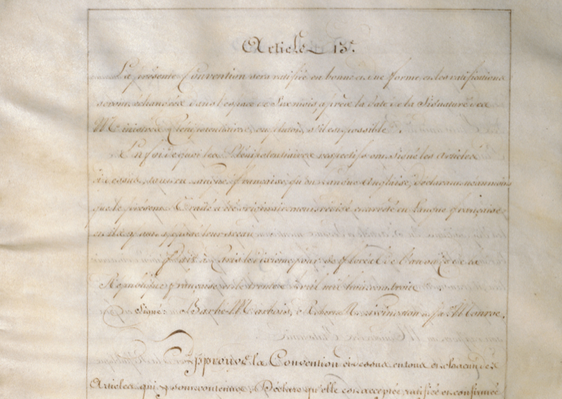 Article 13e.
La présente Convention sera ratifiée en bonne et due forme et les ratifications
seront échangées dans l'espace de Six mois après la date de la Signature des
Ministres Plénipotentiaires, ou plutôt, s'il est possible.
En foi de quoi les Plénipotentiaires respectifs ont signé les articles
ci dessus, tant en langue française qu'en langue Anglaise, déclarant néanmoins
que le présent Traité a été originairement rédigé et arrêté en langue française
et ils y ont apposé leur sceau
Fait à Paris le dixième jour de floréal de l'an onze de la
République française et le trente Avril mil huit cent trois
Signé Barbé Marbois, Robt R Livingston et Jas Monroe.
Approuve la Convention ci dessus en tous et chacun des
Articles qui y sont contenus, Déclare qu'elle est acceptée, ratifiée et confirmée